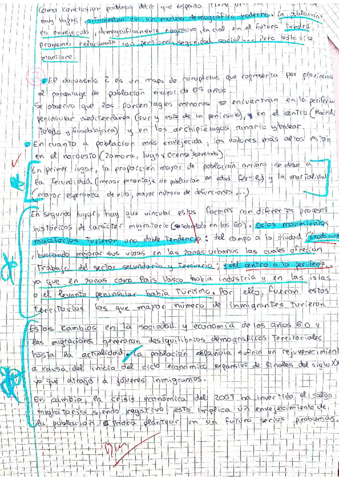 Como conclusión podría decir que España tiene un
muy bajos,
es envejecida, demográficamente
problemas relacionados con pensiones, seguridad social... pero todo ello
mantiene.
El documento 2 es un mapa de coropletas que representa por provincias
el porcentaje de población mayor de 65 años.
Se observa que los porcentajes menores se encuentran en la periferia
peninsular mediterránea (sur y este de la península), y en el centro (Madrid,
Toledo y Guadalajara) y en los archipiélagos canario y balear.
En cuanto a población más envejecida, los valores más altos están
en el noroeste (Zamora, Lugo y Orense
En primer lugar, la proporción mayor de población anciana se debe a
la fecundidad (menos porcentaje de población en edad fértil) y la mortalidad
(mayor esperanza de vida, mayor número de defunciones ...)
En segundo lugar, hay que vincular estos factores con diferentes procesos
históricos de carácter migratorio (sobretodo en los 60). Estos movimientos
migratorios tuvieron una doble tendencia: del campo a la ciudad,
buscando mejorar sus vidas en las zonas urbanas las cuales ofrecían
trabajo del sector secundario y terciario; y del centro a la periferia
ya que en zonas como País Vasco había industria y en las islas
o el levante peninsular había turismo. Por ello, fueron estos
territorios los que mayor número de inmigrantes tuvieron
Estos cambios en la sociedad y economía de los años 60 y
las migraciones generaron desequilibrios demográficos territoriales
hasta la actualidad. La población española sufrió un rejuvenecimiento
a causa del inicio del ciclo económico expansivo de finales del siglo XX
ya que atrajo a jóvenes inmigrantes.
En cambio, la crisis económica del 2007 ha invertido el saldo
migratorio siendo negativo, esto implica un envejecimiento de
la población y podrá plantear en un futuro serios problemas.